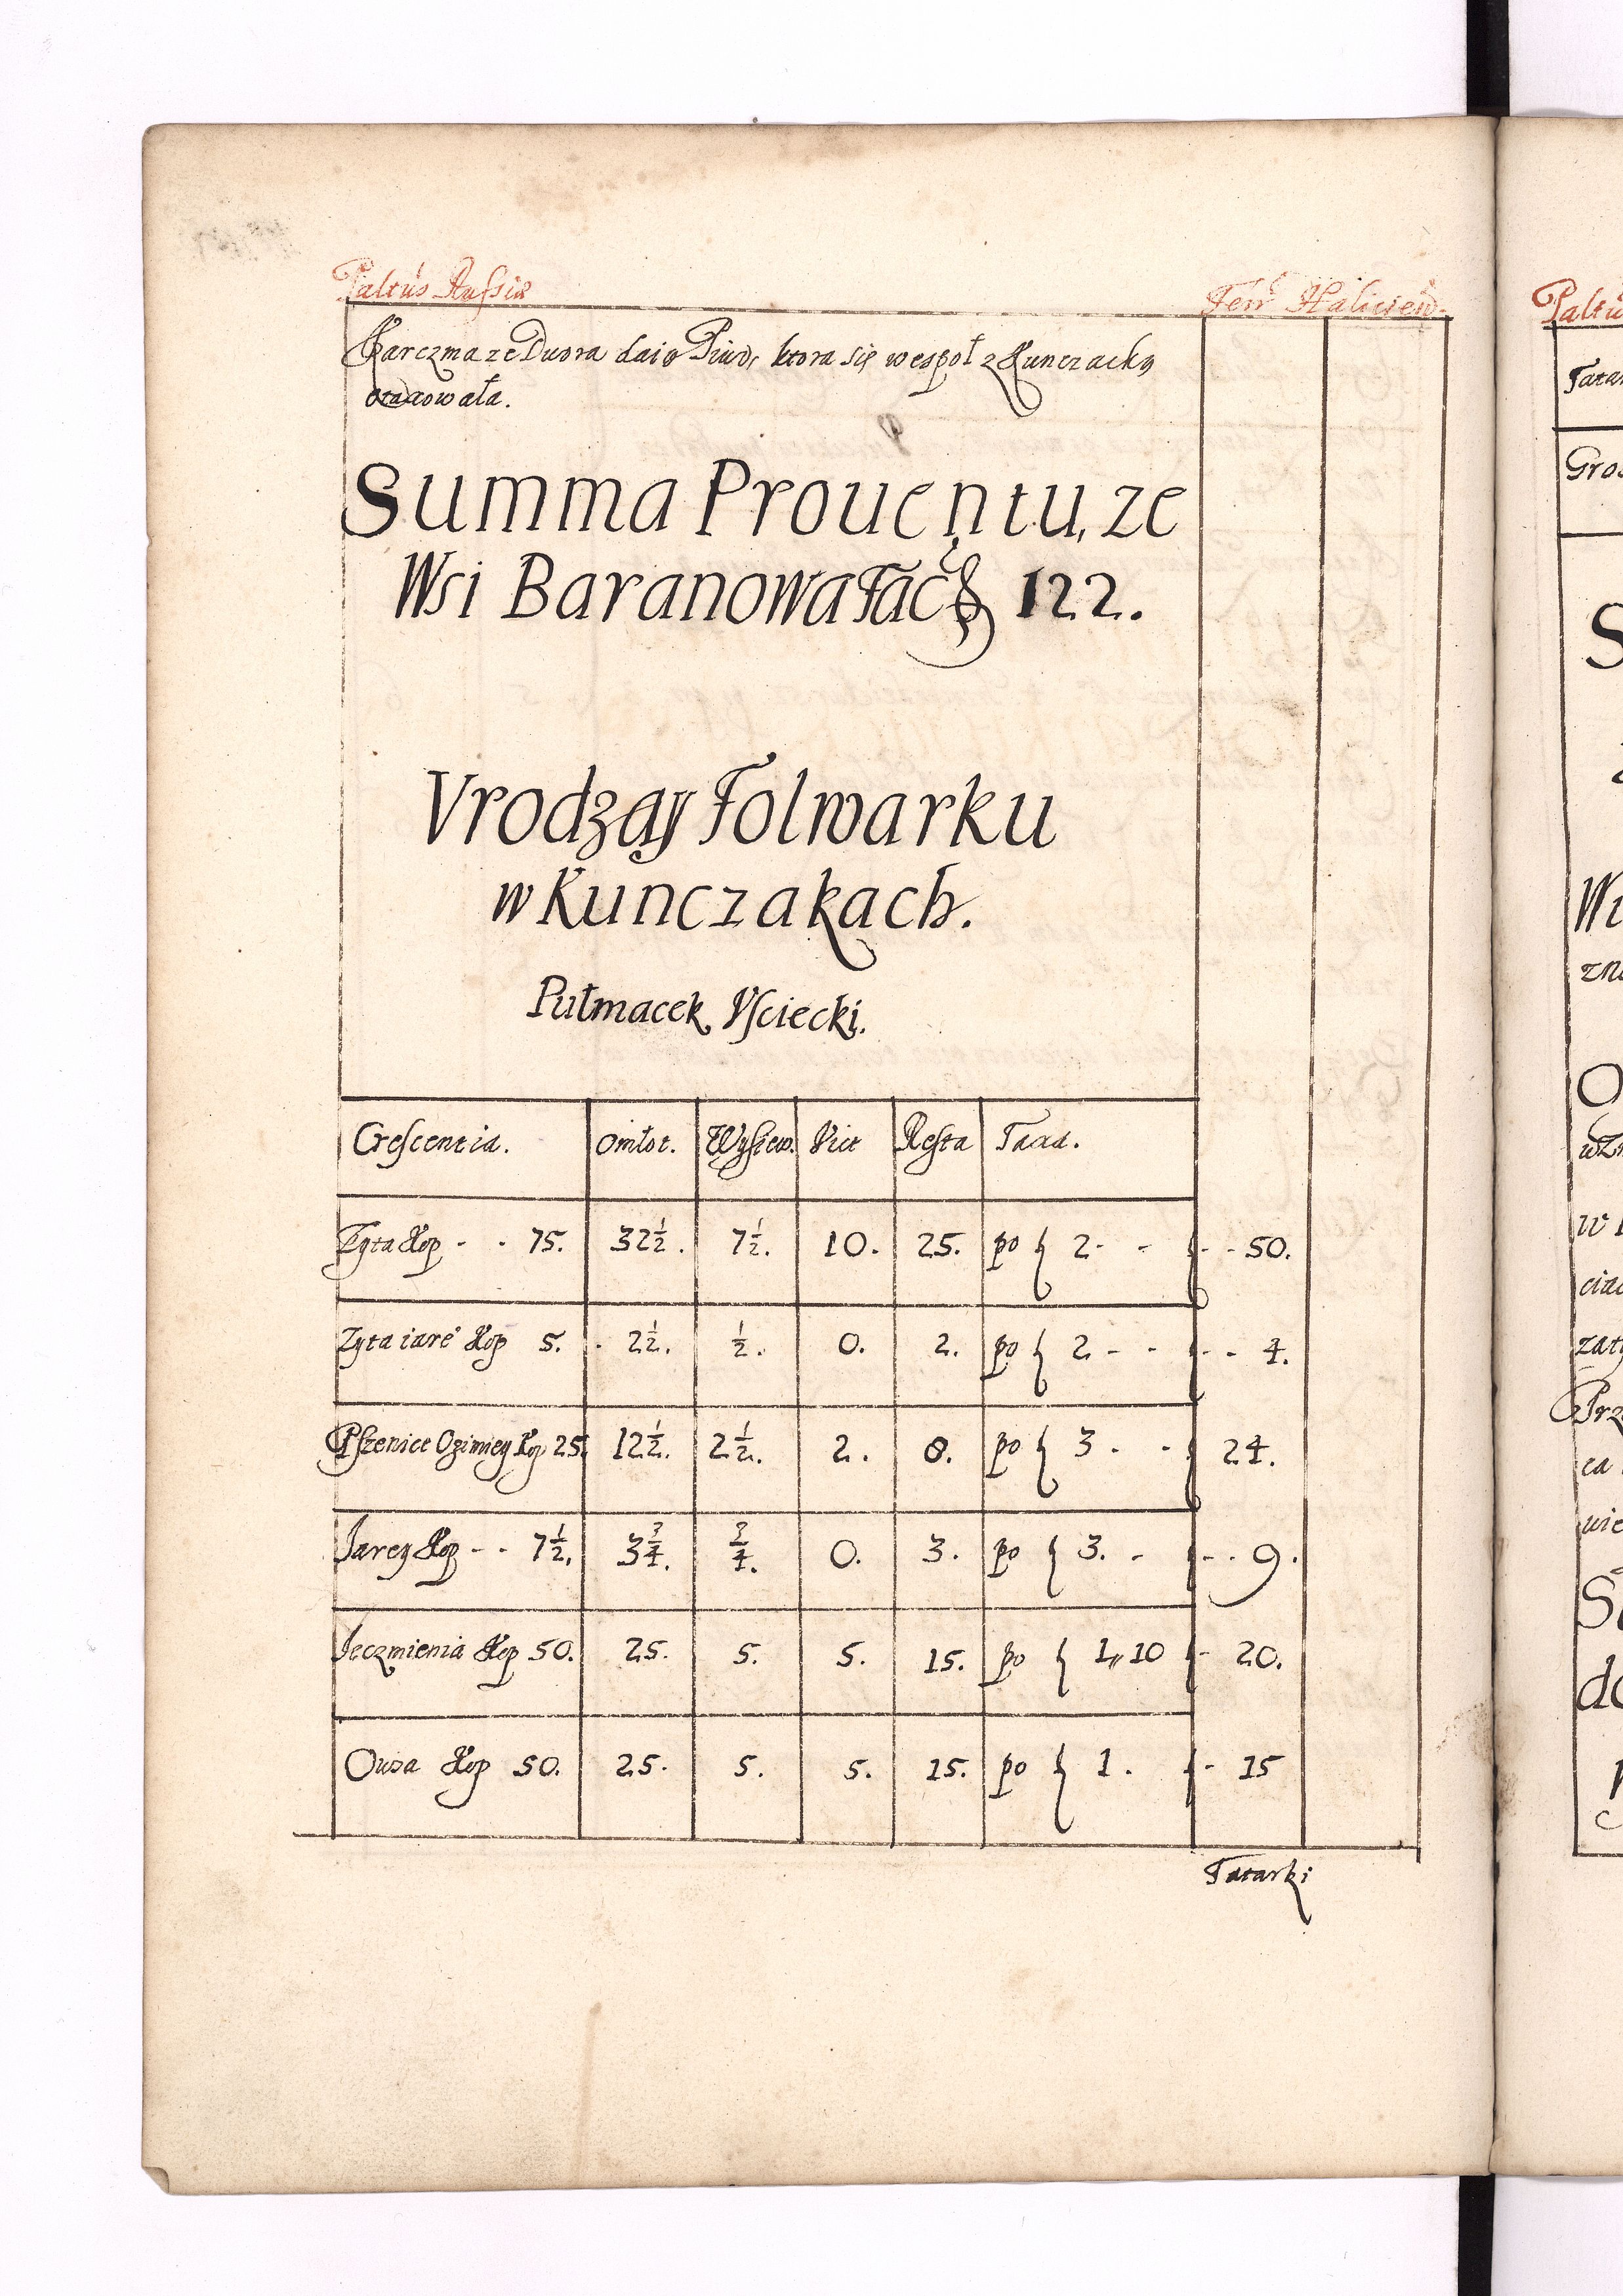 Paltus Russiæ
Terr Haliciew.
Karczma ze Dwora daią Piwo, ktora się wespoł z Kunczacką
otaxowała.
Summa Prouentu, ze
Wsi Baranowa facit 122.
Vrodzay Folwarku
w Kunczakach.
Pułmacek Vsciecki.
Crescentia. Omłot. Wysiew. Vict Resta Taxa.
Zyta Kop - - 75. 32½. 7½. 10. 25. po 2 - - - - 50.
Zyta iare Kop 5. 2½. ½. 0. 2. po 2 - - - - 4.
Pszenice Ozimey Kop 25. 12½. 2½. 2. 8. po 3 - - 24.
Jarey Kop - - 7½. 3¾. ¾. 0. 3. po 3. - - - 9.
Jeczmienia Kop 50. 25. 5. 5. 15. po 1,,10 - 20.
Owsa Kop 50. 25. 5. 5. 15. po 1. - 15
Tatarki
Paltu
Tatar
Gros